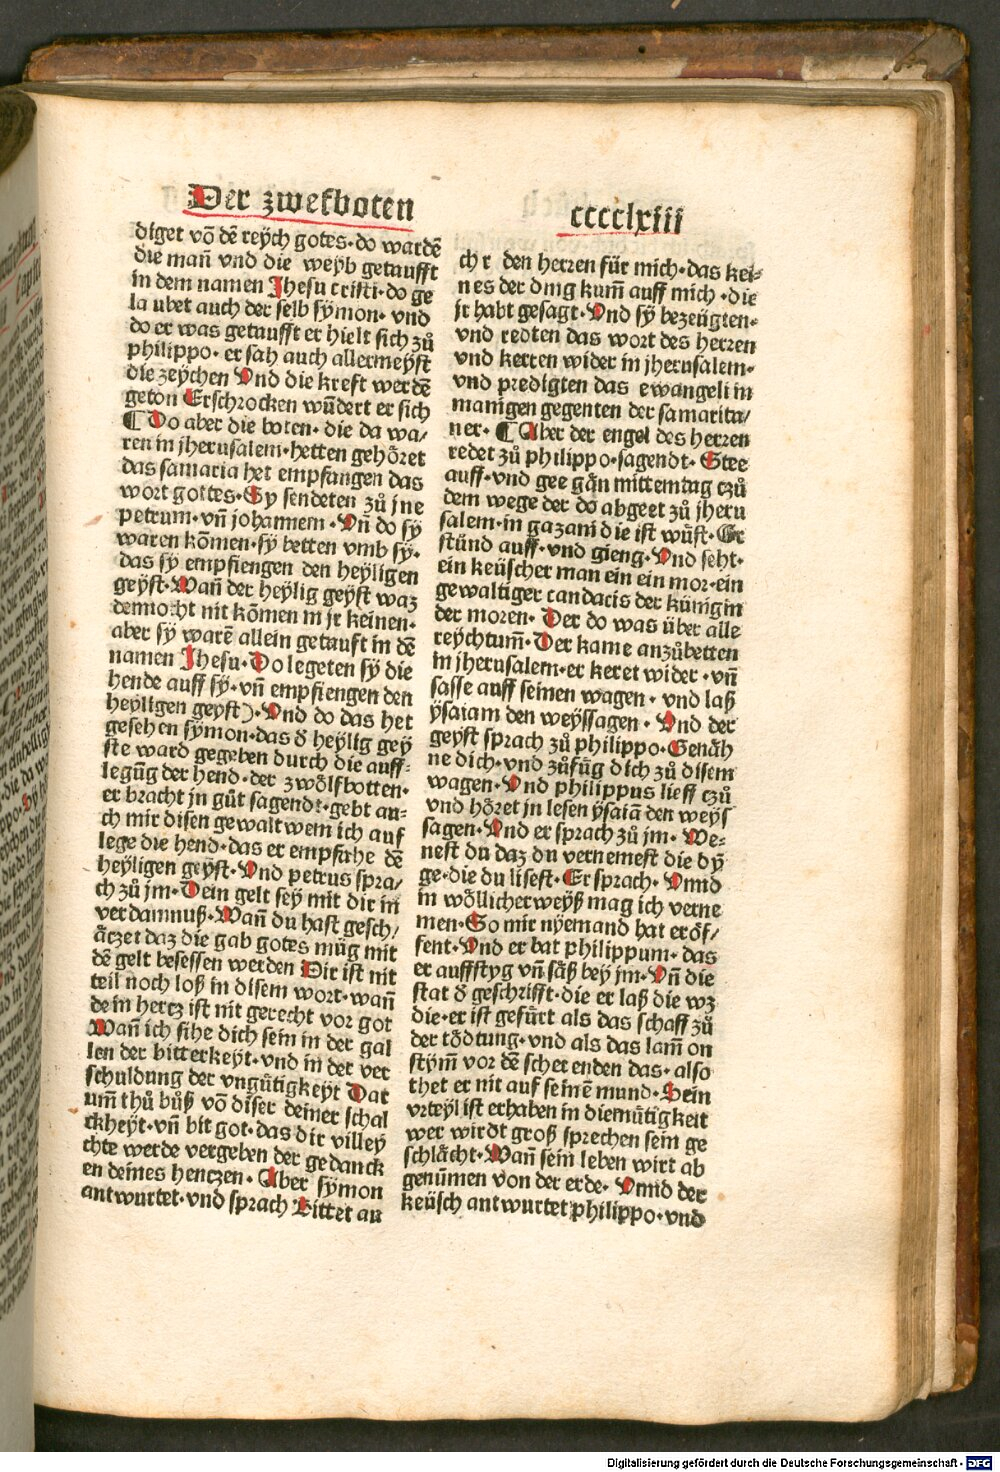 Der zwelboten
cccclxiii
diget võ dẽ reÿch gotes·do wardẽ
die mañ vnd die weyb getaufft
in dem namen Jhesu cristi·do ge
la ubet auch der selb sÿmon·vnd
do er was getaufft er hielt sich zů
philippo·er sah auch allermeÿst
die zeÿchen Vnd die kreft werdẽ
geton Erschrocken wũdert er sich
¶ Do aber die boten·die da wa/
ren in jherusalem·hetten gehöret
das samaria het empfangen das
wort gottes·Sy sendeten zů jne
petrum·vñ johannem·Vñ do sÿ
waren kõmen·sÿ betten vmb sÿ·
das sÿ empfiengen den heÿligen
geÿst·Wañ der heÿlig geÿst waz
dennocht nit kõmen in jr keinen·
aber sÿ warẽ allein getauft in dẽ
namen Jhesu·Do legeten sÿ die
hende auff sÿ·vñ empfiengen den
heyligen geyst)·Vnd do das het
gesehen sÿmon·das ð heÿlig geÿ
ste ward gegeben durch die auff⸗
legũg der hend·der zwölfbotten·
er bracht jn gůt sagendt·gebt au⸗
ch mir disen gewalt wem ich auf
lege die hend·das er empfahe dẽ
heÿligen geÿst·Vnd petrus spra/
ch zů jm·Dein gelt seÿ mit dir in
verdamnuß·Wañ du hast gesch/
ätzet daz die gab gotes müg mit
dẽ gelt besessen werden Dir ist nit
teil noch loß in disem wort·wañ
dein hertz ist nit gerecht vor got
Wañ ich sihe dich sein in der gal
len der bitterkeÿt·vnd in der ver
schuldung der vngütigkeÿt Dar
um̃ thů bůß võ diser deiner schal
ckheÿt·vñ bit got·das dir villeÿ
chte werde vergeben der gedanck
en deines hertzen·Aber sÿmon
antwurtet·vnd sprach Bittet au
ch r den herren für mich·das kei⸗
nes der ding kum̃ auff mich·die
jr habt gesagt·Vnd sÿ bezeügten⸗
vnd redten das wort des herren
vnd kerten wider in jherusalem⸗
vnd predigten das ewangeli in
manigen gegenten der samarita/
ner·¶Aber der engel des herren
redet zů philippo·sagendt·Stee
auff·vnd gee gãn mittemtag czů
dem wege der do abgeet zů jheru
salem·in gazam die ist wüst·Er
stünd auff·vnd gieng·Vnd seht·
ein keüscher man ein ein mor·ein
gewaltiger candacis der künigin
der moren·Der do was über alle
reÿchtum̃·Der kame anzůbetten
in jherusalem·er keret wider·vñ
sasse auff seinen wagen·vnd laß
ÿsaiam den weÿssagen·Vnd der
geÿst sprach zů philippo·Genäh
ne dich·vnd zůfüg dich zů disem
wagen·Vnd philippus lieff czů
vnd höret jn lesen ÿsaiã den weÿs
sagen·Vnd er sprach zů jm·We⸗
nest du daz du vernemest die dÿ
ge·die du lisest·Er sprach·Vnnd
in wöllicherweÿß mag ich verne
men·So mir nÿemand hat eröf/
fent·Vnd er bat philippum·das
er auffstyg vñ säß beÿ jm·Vñ die
stat ð geschrifft·die er laß die wz
die·er ist gefürt als das schaff zů
der tödtung·vnd als das lam̃ on
stÿm̃ vor dẽ scherenden das·also
thet er nit auf seinẽ mund·Sein
vrteÿl ist erhaben in diemütigkeit
wer wirdt groß sprechen sein ge
schlächt·Wañ sein leben wirt ab
genũmen von der erde·Vnnd der
keüsch antwurtet philippo·vnd
Digitalisierung gefördert durch die Deutsche Forschungsgemeinschaft - DFG